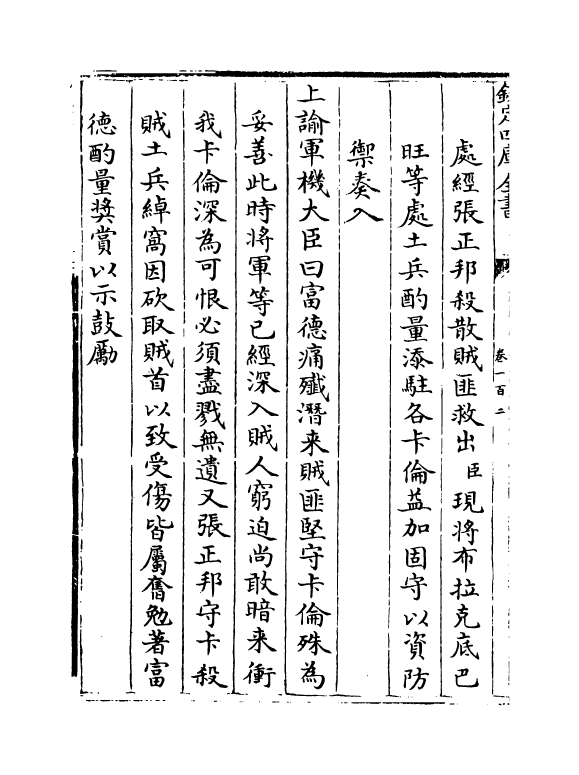 欽定四庫全書
卷一百二
處經張正邦殺散賊匪救出臣現將布拉克底巴
旺等處土兵酌量添駐各卡倫益加固守以資防
禦奏入
上諭軍機大臣曰富德痛殲潛来賊匪堅守卡倫殊為
妥善此時将軍等已經深入賊人窮迫尚敢暗来衝
我卡倫深為可恨必須盡戮無遺又張正邦守卡殺
賊土兵綽窩因砍取賊首以致受傷皆屬奮勉著富
德酌量奬賞以示鼓勵